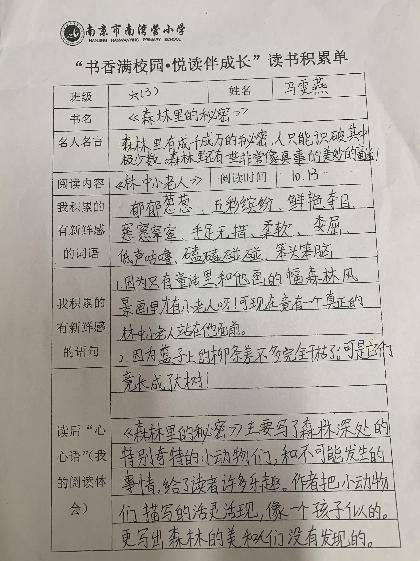 南京市南湾营小学
NANJING NANWANYING PRIMARY SCHOOL
“书香满校园·悦读伴成长”读书积累单
班级 六(3) 姓名 马雯燕
书名 《森林里的秘密》
名人名言 森林里有成千成万的秘密,人只能识破其中
极少数。森林里还有些非常像真事的美妙的童话!
阅读内容 《林中小老人》 阅读时间 10.13
我积累的
有新鲜感
的词语
郁郁葱葱、五彩缤纷、鲜艳夺目、
窸窸窣窣、手足无措、柔软、委屈、
低声咕噜、磕磕碰碰、笨头笨脑
我积累的
有新鲜感
的语句
1.因为只有童话里和他画的幅森林风
景画里才有小老人呀!可现在竟有一个真正的
林中小老人站在他面前。
2.因为篮子上的柳条差不多完全干枯了,可是它们
竟长成了大树!
读后“心
心语”(我
的阅读体
会)
《森林里的秘密》主要写了森林深处的
特别奇特的小动物们,和不可能发生的
事情,给了读者许多乐趣。作者把小动物
们描写的活灵活现,像一个孩子似的。
更写出森林的美和人们没有发现的。